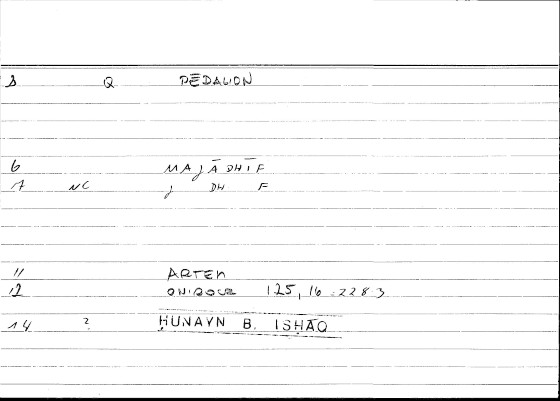 8 Q PĒDALION
6 MAJĀDHĪF
7 NC J DH F
11 ARTEM
12 ONIROCR 125, 16 : 228 3
14 ? ḤUNAYN B. ISḤĀQ